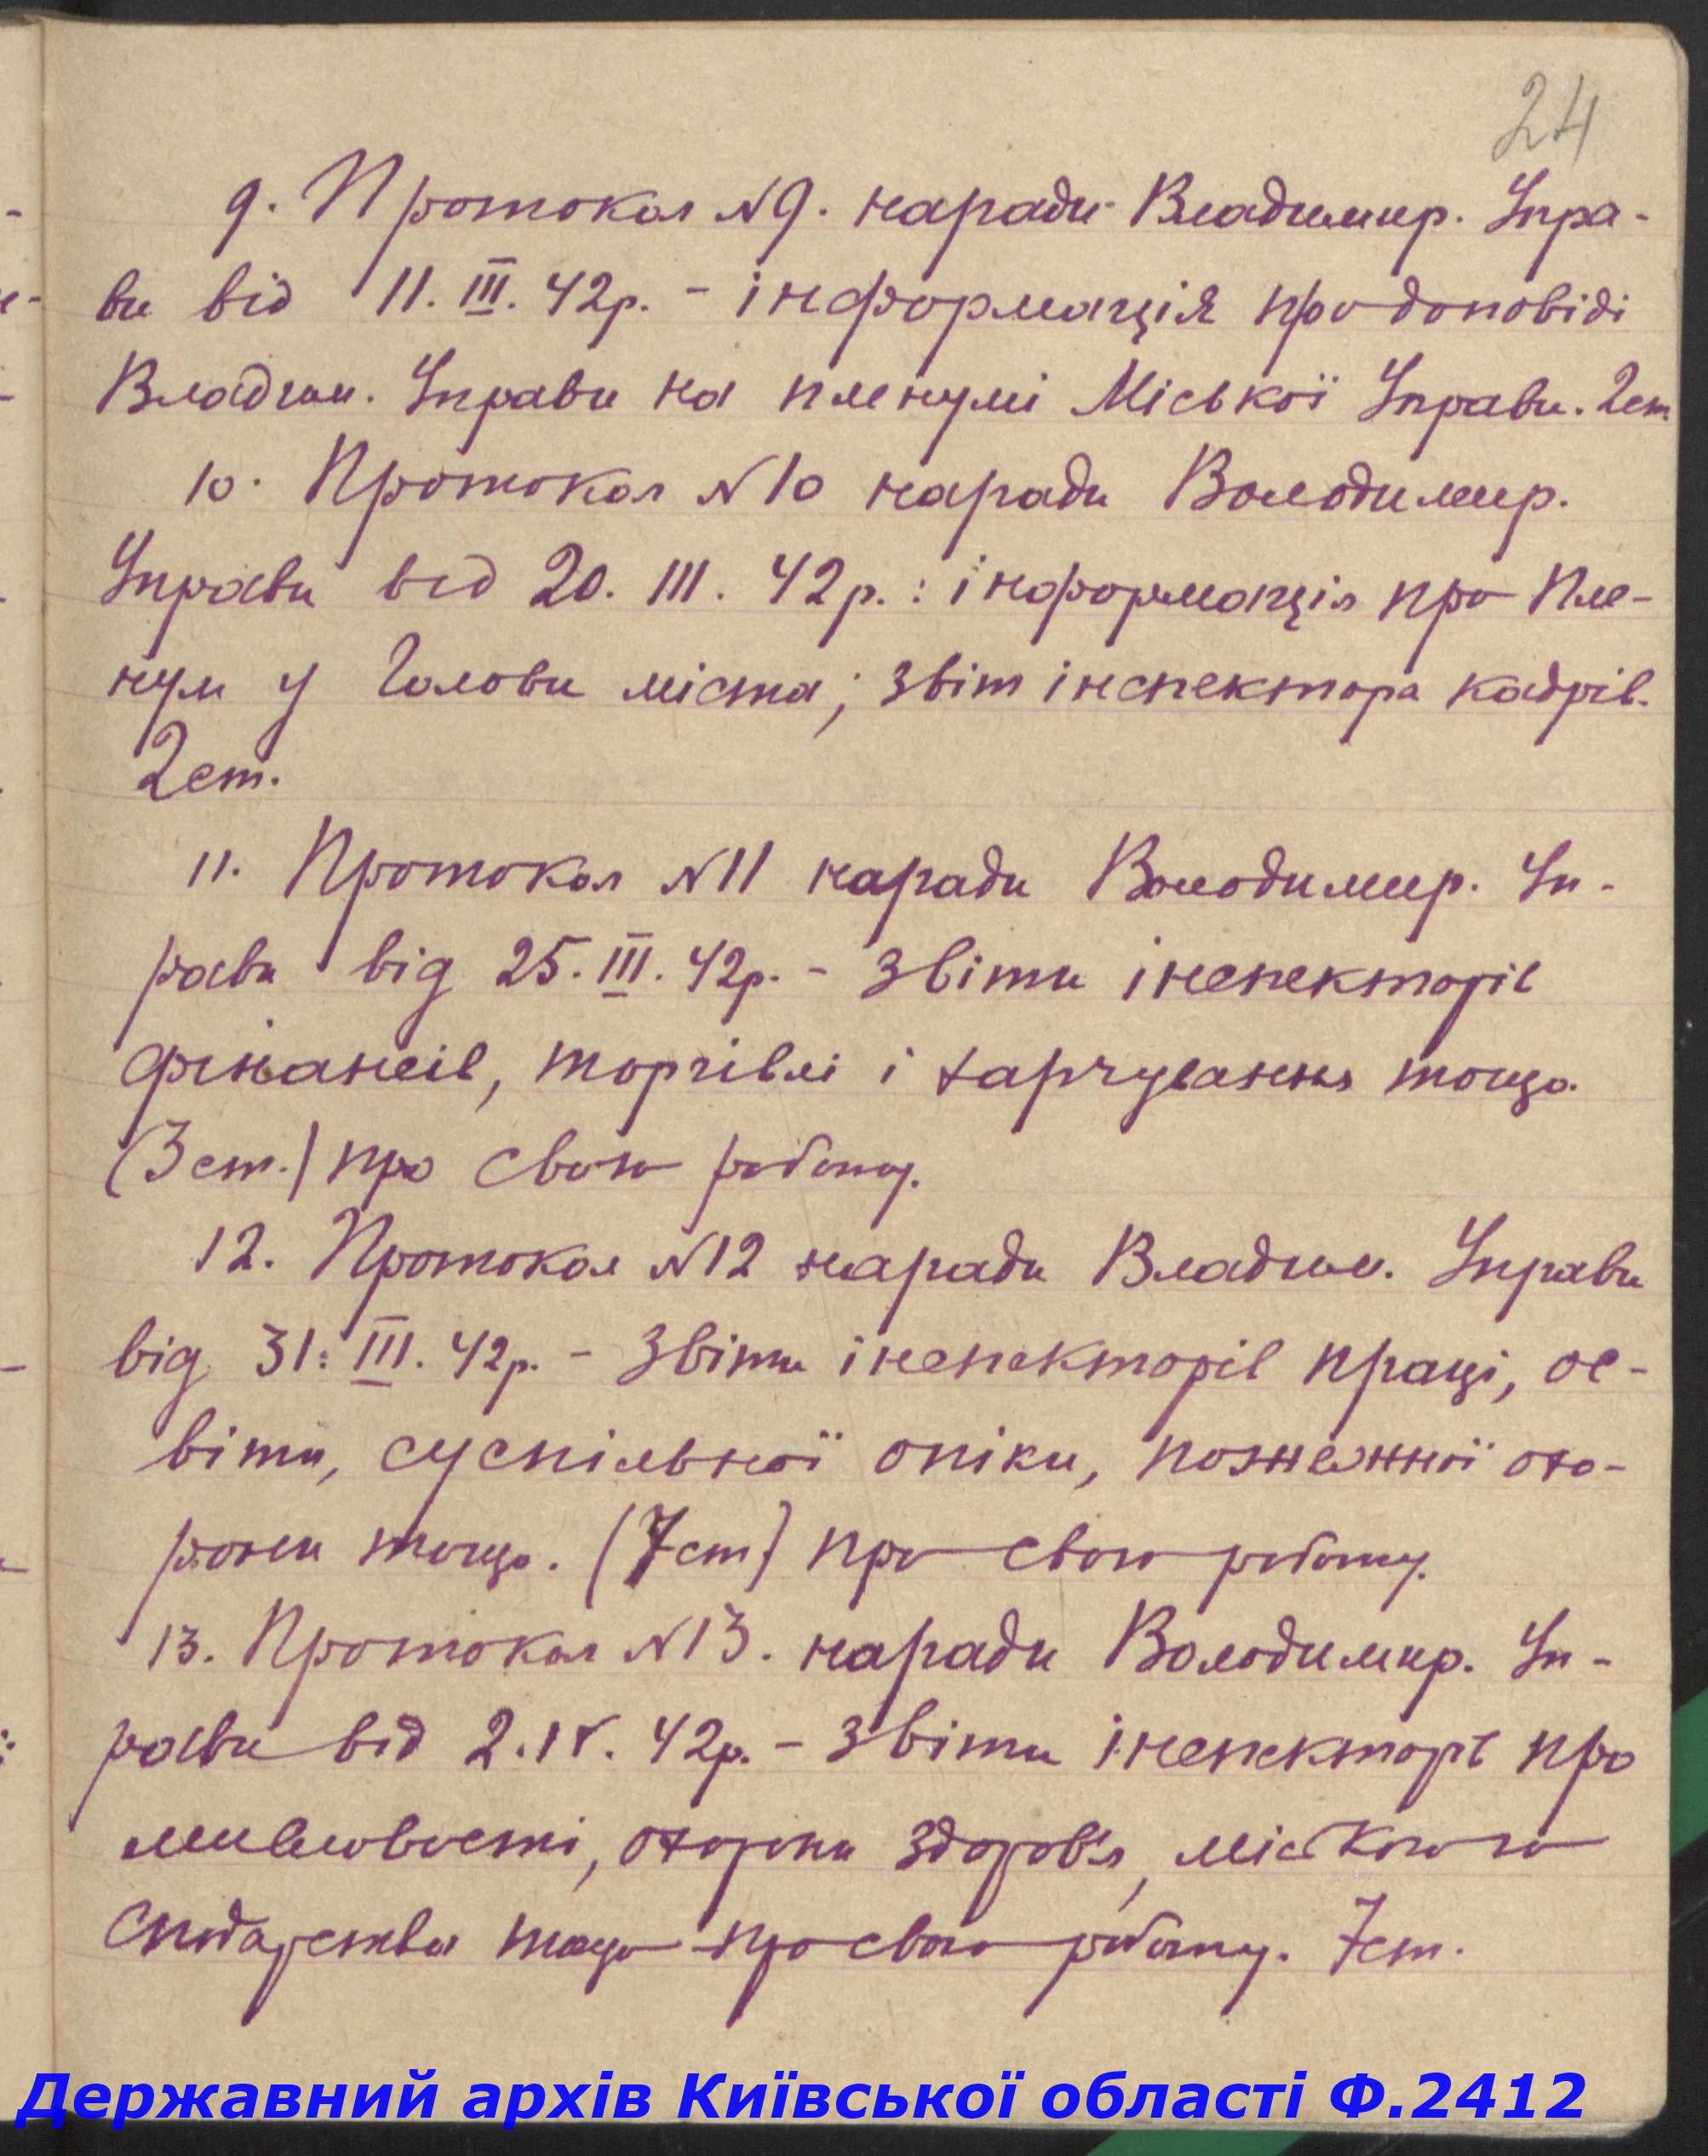 24
9. Протокол №9. наради Владимир. Упра-
ви від 11. III. 42р. - інформація про доповіді
Владим. Управи на пленумі Міської Управи. 2ст.
10. Протокол №10 наради Володимир.
Управи від 20. III. 42р.: інформація про Пле-
нум у Голови міста; звіт інспектора кадрів.
2ст.
11. Протокол №11 наради Володимир. Уп-
рави від 25. III. 42р. - звіти інспекторів
фінансів, торгівлі і харчування тощо
(3ст.) про свою роботу.
12. Протокол №12 наради Владим. Управи
від 31. III. 42р. - Звіти інспекторів праці, ос-
віти, суспільної опіки, пожежної охо-
рони тощо. (7ст.) про свою роботу.
13. Протокол №13. наради Володимир. Уп-
рави від 2. IV. 42р. - звіти інспекторів про
мисловости, охорони здоров'я, міського
сподарства тощо про свою роботу. 7ст.
Державний архів Київської області Ф.2412